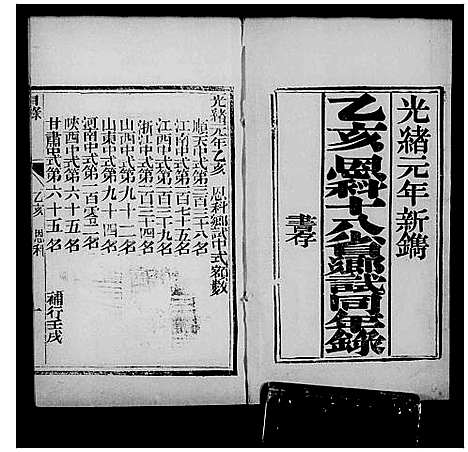 光緒元年新鐫
乙亥恩科十八省鄉試同年錄
書存
光緒元年乙亥 恩科鄉試中式額數
順天中式第三百二十八名
江南中式第一百七十五名
江西中式第一百二十九名
浙江中式第一百二十四名
山西中式第九十二名
山東中式第九十四名
河南中式第一百零二名
陝西中式第六十五名
甘肅中式第六十五名
補行壬戌
目錄 乙亥 恩科 一